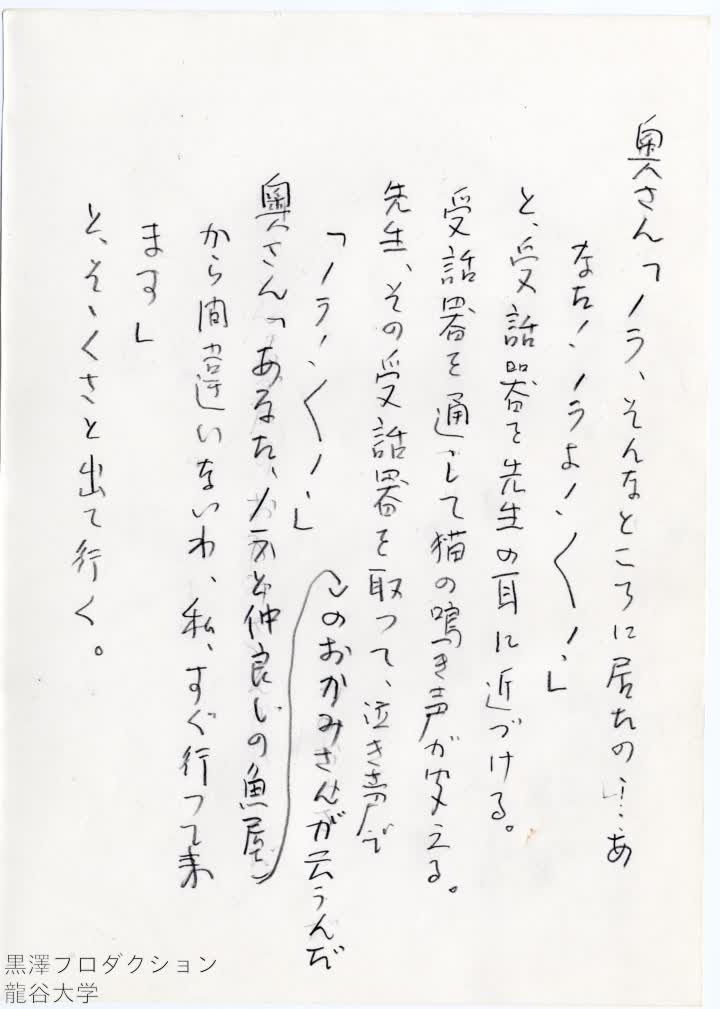 奥さん「ノラ、そんなところに居たの!…あ
なた! ノラよ! 〱!」
と、受話器を先生の耳に近づける。
受話器を通して猫の鳴き声が変える。
先生、その受話器を取って、泣き声で
「ノラ! 〱!」
奥さん「あなた、ノラと仲良しの魚屋
このおかみさんが云うんだ
から間違いないわ、私、すぐ行って来
ます」
と、そゝくさと出て行く。
黒澤プロダクション
龍谷大学